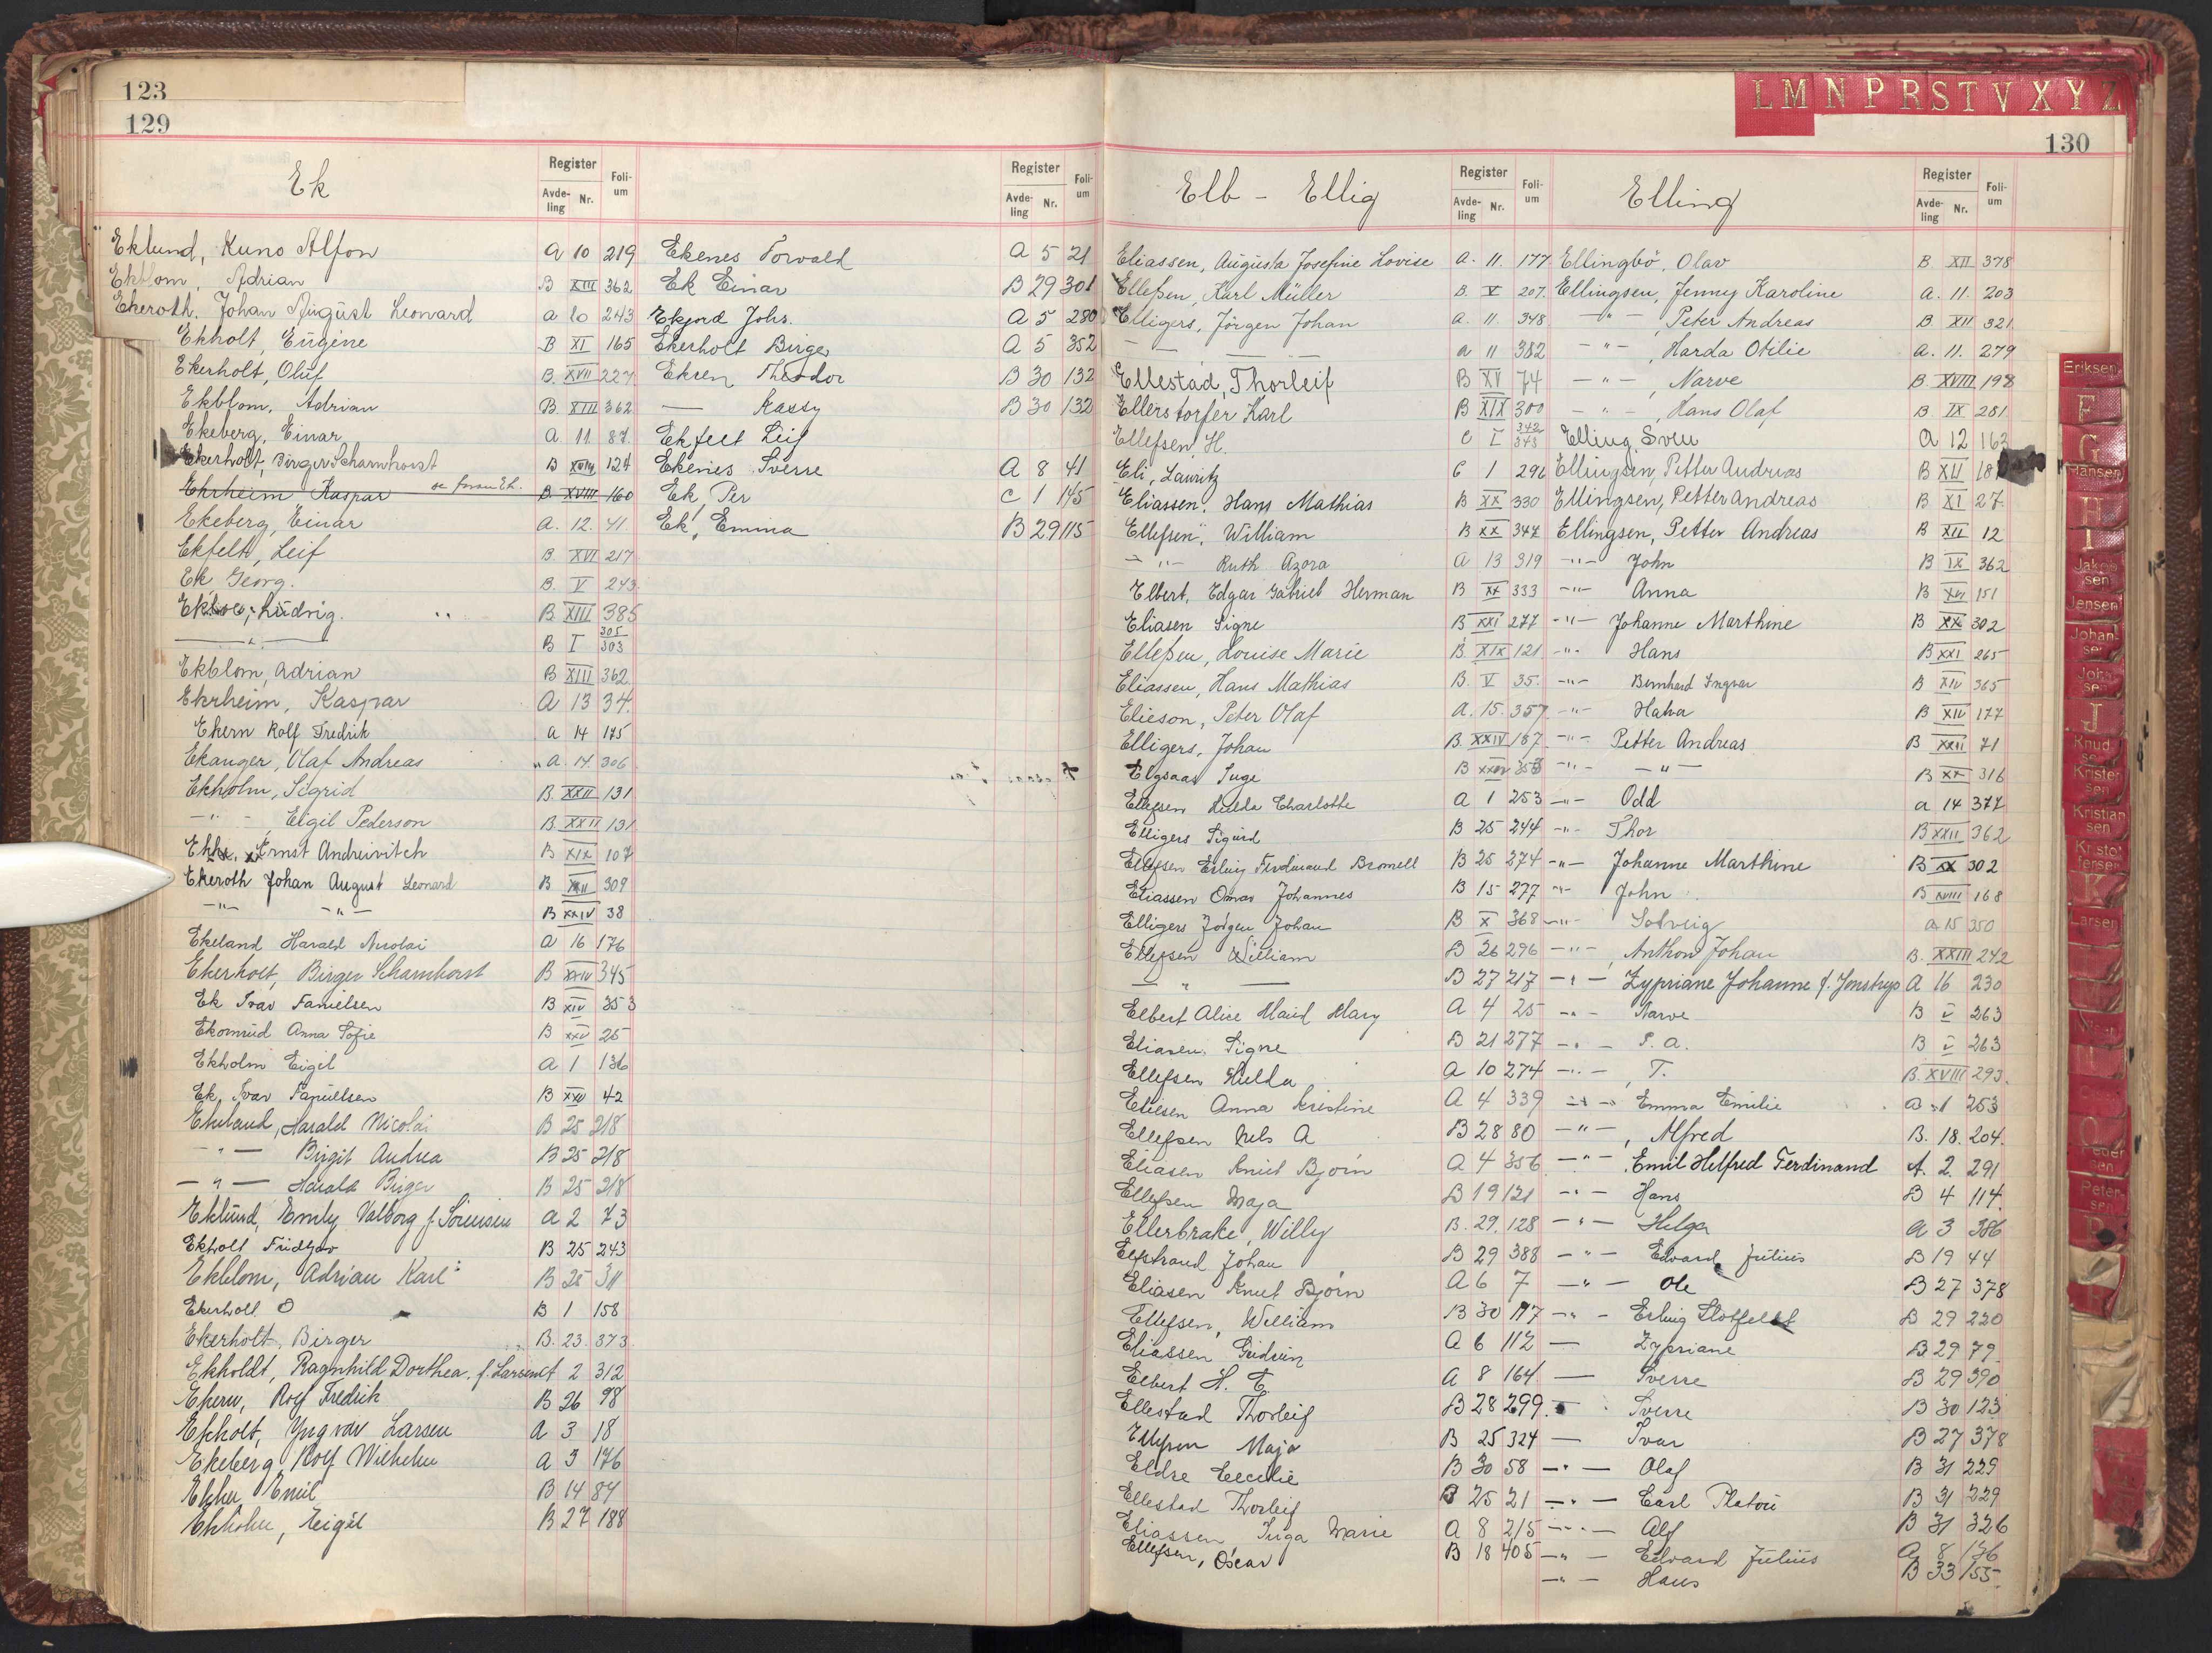 123
129
Ek
Register
Avde-ling Nr. Folium
Eklund, Kuno Alfon A 10 219
Ekblom, Adrian B XIII 362
Ekeroth, Johan August Leonard a 10 243
Ekholt, Eugene B XI 165
Ekerholt, Oluf B. XVII 227
Ekblom, Adrian B. XIII 362
Ekeberg, Einar A. 11. 87.
Ekerholt, Birger Scharnhorst B XVIII 124
Ekrheim Kaspar se foran Ek. B. XVIII 160
Ekeberg, Einar A. 12. 41
Ekfelt, Leif B. XVI 217
Ek Georg. B. V 243
Ludvig. B XIII 385
—"— B I 305 303
Ekblom, Adrian B XIII 362
Ekrheim, Kaspar A 13 34.
Ekern Rolf Fredrik a 14 175
Ekanger, Olaf Andreas A. 14. 306
Ekholm, Sigrid B. XXII 131
—"—, Eigil Pederson B. XXII 131
Ernst Andreivitch B XIX 107
Ekeroth Johan August Leonard B XXII 309
—"— —"— B XXIV 38
Ekeland Harald Nicolai A 16 176
Ekerholt, Birger Scharnhorst B XXIV 345
Ek Ivar Fanuelsen B XIV 353
Ekornrud Anna Sofie B XXV 25
Ekholm Eigil A 1 136
Ek, Ivar Fanuelsen B XXV 42
Ekeland, Harald Nicolai B 25 218
—"— Birgit Andrea B 25 218
—"— Harald Birger B 25 218
Eklund, Emly Valborg f. Sørensen A 2 73
Ekholt Fridtjov B 25 243
Ekblom, Adrian Karl B 25 311
Ekerholt O B 1 158
Ekerholt, Birger B. 23. 373.
Ekholdt, Ragnhild Dorthea f. Larsen A 2 312
Ekern, Rolf Fredrik B 26 98
Ekholt, Yngvar Larsen A 3 18
Ekeberg Rolf Wilhelm A 3 176
Ekker Emil B 14 84
Ekholm, Eigil B 27 188
Register
Avde-ling Nr. Folium
Ekenes Torvald A 5 21
Ek Einar B 29 301
Ekjord Johs. A 5 280
Ekerholt Birger A 5 352
Eksen Theodor B 30 132
— Kassy B 30 132
Ekfelt Leif
Ekenes Sverre A 8 41
Ek, Per C 1 145
Ek, Emma B 29 115
L M N P R S T V X Y Z
130
Elb - Ellig
Register
Avde-ling Nr. Folium
Eliassen, Augusta Josefine Lovise A. 11. 177
Ellefsen, Karl Müller B. V 207.
Elligers, Jörgen Johan A. 11. 348
— — — a 11 382
Ellestad, Thorleif B XV 74
Ellerstorfer Karl B XIX 300
Ellefsen, H. C I 342 343
Eli, Lauritz C 1 296
Eliassen, Hans Mathias B XX 330
Ellefsen, William B XX 347
—"— Ruth Azora A 13 319
Elbert, Edgar Gabriel Herman B XX 333
Eliasen Signe B XXI 277
Ellefsen, Louise Marie B. XIX 121
Eliassen, Hans Mathias B. V 35.
Elieson, Peter Olaf A. 15. 357
Elligers, Johan B. XXIV 187
Elgsaas Inge B XXIV 353
Ellefsen Hulda Charlotte A 1 253
Elligers Sigurd B 25 244
Ellefsen Erling Ferdinand Bromell B 25 274
Eliassen Omar Johannes B 15 277
Elligers Jörgen Johan B X 368
Ellefsen William B 26 296
— " — B 27 217
Elbert Alice Maud Mary A 4 25
Eliasen, Signe B 21 277
Ellefsen Hulda A 10 274
Eliesen Anna Kristine A 4 339
Ellefsen Nels A B 28 80
Eliasen Knut Bjørn A 4 356
Ellefsen Maja B 19 121
Ellerbrake, Willy B. 29. 128
Elfstrand Johan B 29 388
Eliasen Knut Bjørn A 6 7
Ellefsen, William B 30 117
Eliassen Gudrun A 6 112
Elbert H. E. A 8 164
Ellestad Thorleif B 28 299.
Ellefsen Maja B 25 324
Eldre Cecelie B 30 58
Ellestad Thorleif B 25 21
Eliassen Inga Marie A 8 215
Ellefsen, Oscar B 18 405
Elling
Register
Avde-ling Nr. Folium
Ellingbö, Olav B. XII 378
Ellingsen, Jenny Karoline A. 11. 203
—"—, Peter Andreas B. XII 321
—"—, Harda Otilie A. 11. 279
—"—, Narve B. XVIII 198
—"—, Hans Olaf B IX 281
Elling Sven A 12 163
Ellingsen, Petter Andreas B XII 18
Ellingsen, Petter Andreas B XI 27.
Ellingsen, Petter Andreas B XII 12
—"— John B IX 362
—"— Anna B XVI 151
—"— Johanne Marthine B XX 302
—"— Hans B XXI 265
—"— Bernhard Ingvar B XIV 365
—"— B XIV 177
—"— Petter Andreas B XXII 71
—"— —"— B XX 316
—"— Odd a 14 377
—"— Thor B XXII 362
—"— Johanne Marthine B XX 302
—"— John B XVIII 168
—"— Solveig a 15 350
—"—, Anthon Johan B. XXIII 242
—"— Zypriane Johanne f. A 16 230
—"— Narve B V 263
—"— P. A. B V 263
—"—, T. B. XVIII 293.
—"— Emma Emilie B 1 253
—"—, Alfred B. 18. 204.
—"— Emil Helfred Ferdinand A. 2 291
—"— Hans B 4 114.
—"— Helga A 3 386
—"— Edvard Julius B 19 44
—"— Ole B 27 378
—"— Erling Slotfeldt B 29 220
— Zypriane B 29 79
— Sverre B 29 390
— Sverre B 30 123
— Ivar B 27 378
—"— Olaf B 31 229
—"— Carl Platou B 31 229
—"— Alf B 31 326
—"— Edvard Julius A 8 136
—"— Hans B 33 155
Eriksen
F
G
Hansen
H
I
Jakobsen
Jensen
Johansen
Johnsen
J
Knudsen
Kristensen
Kristiansen
Kristoffersen
K
Larsen
O
Pedersen
Petersen